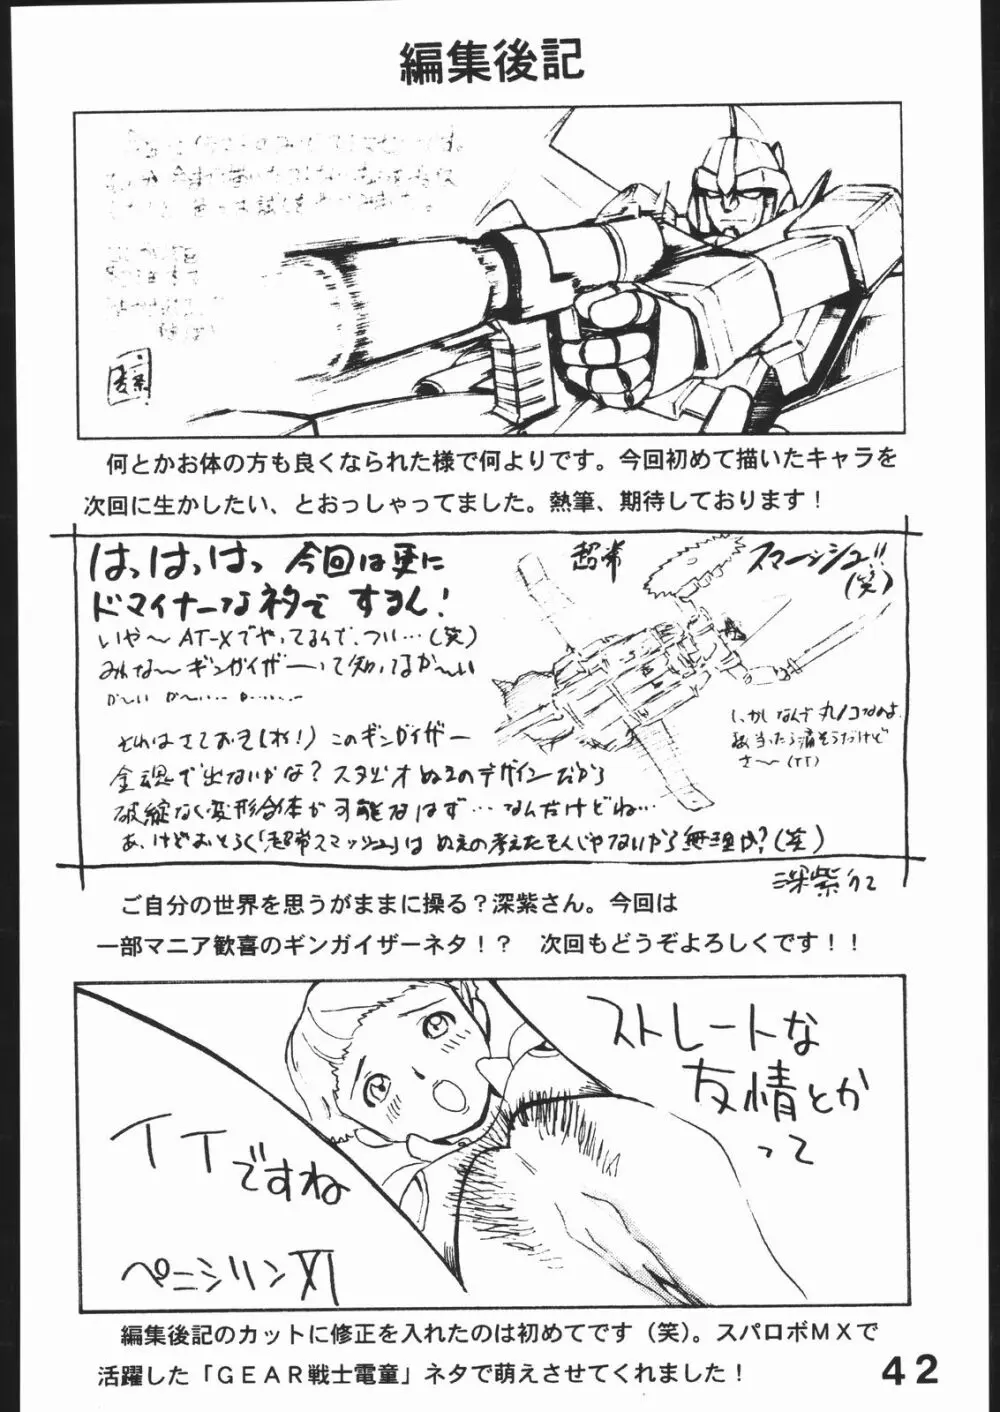 編集後記
何とかお体の方も良くなられた様で何よりです。今回初めて描いたキャラを
次回に生かしたい、とおっしゃってました。熱筆、期待しております！
はっはっはっ 今回は更に
ドマイナーなネタで するん！
いや〜 AT-Xでやってるんで、つい…(笑)
みんな〜ギンガイザーって知ってるか〜い
か〜い か〜い…
超常
スマーッシュ!!
(笑)
しかしなんで丸ノコなのよ
さ〜(TT)
それはさておき(ね!) このギンガイザー
金魂で出ないかな？スタジオぬえのデザインだから
破綻なく変形合体が可能なはず…なんだけどね…
あ、けどおそらく「超常スマッシュ」は ぬえの考えたもんじゃないから無理か？(笑)
ご自分の世界を思うがままに操る？深紫さん。今回は
一部マニア歓喜のギンガイザーネタ！？　次回もどうぞよろしくです！！
ストレートな
友情とか
って
イイですね
ペニシリンXI
編集後記のカットに修正を入れたのは初めてです（笑）。スパロボＭＸで
活躍した「ＧＥＡＲ戦士電童」ネタで萌えさせてくれました！
42